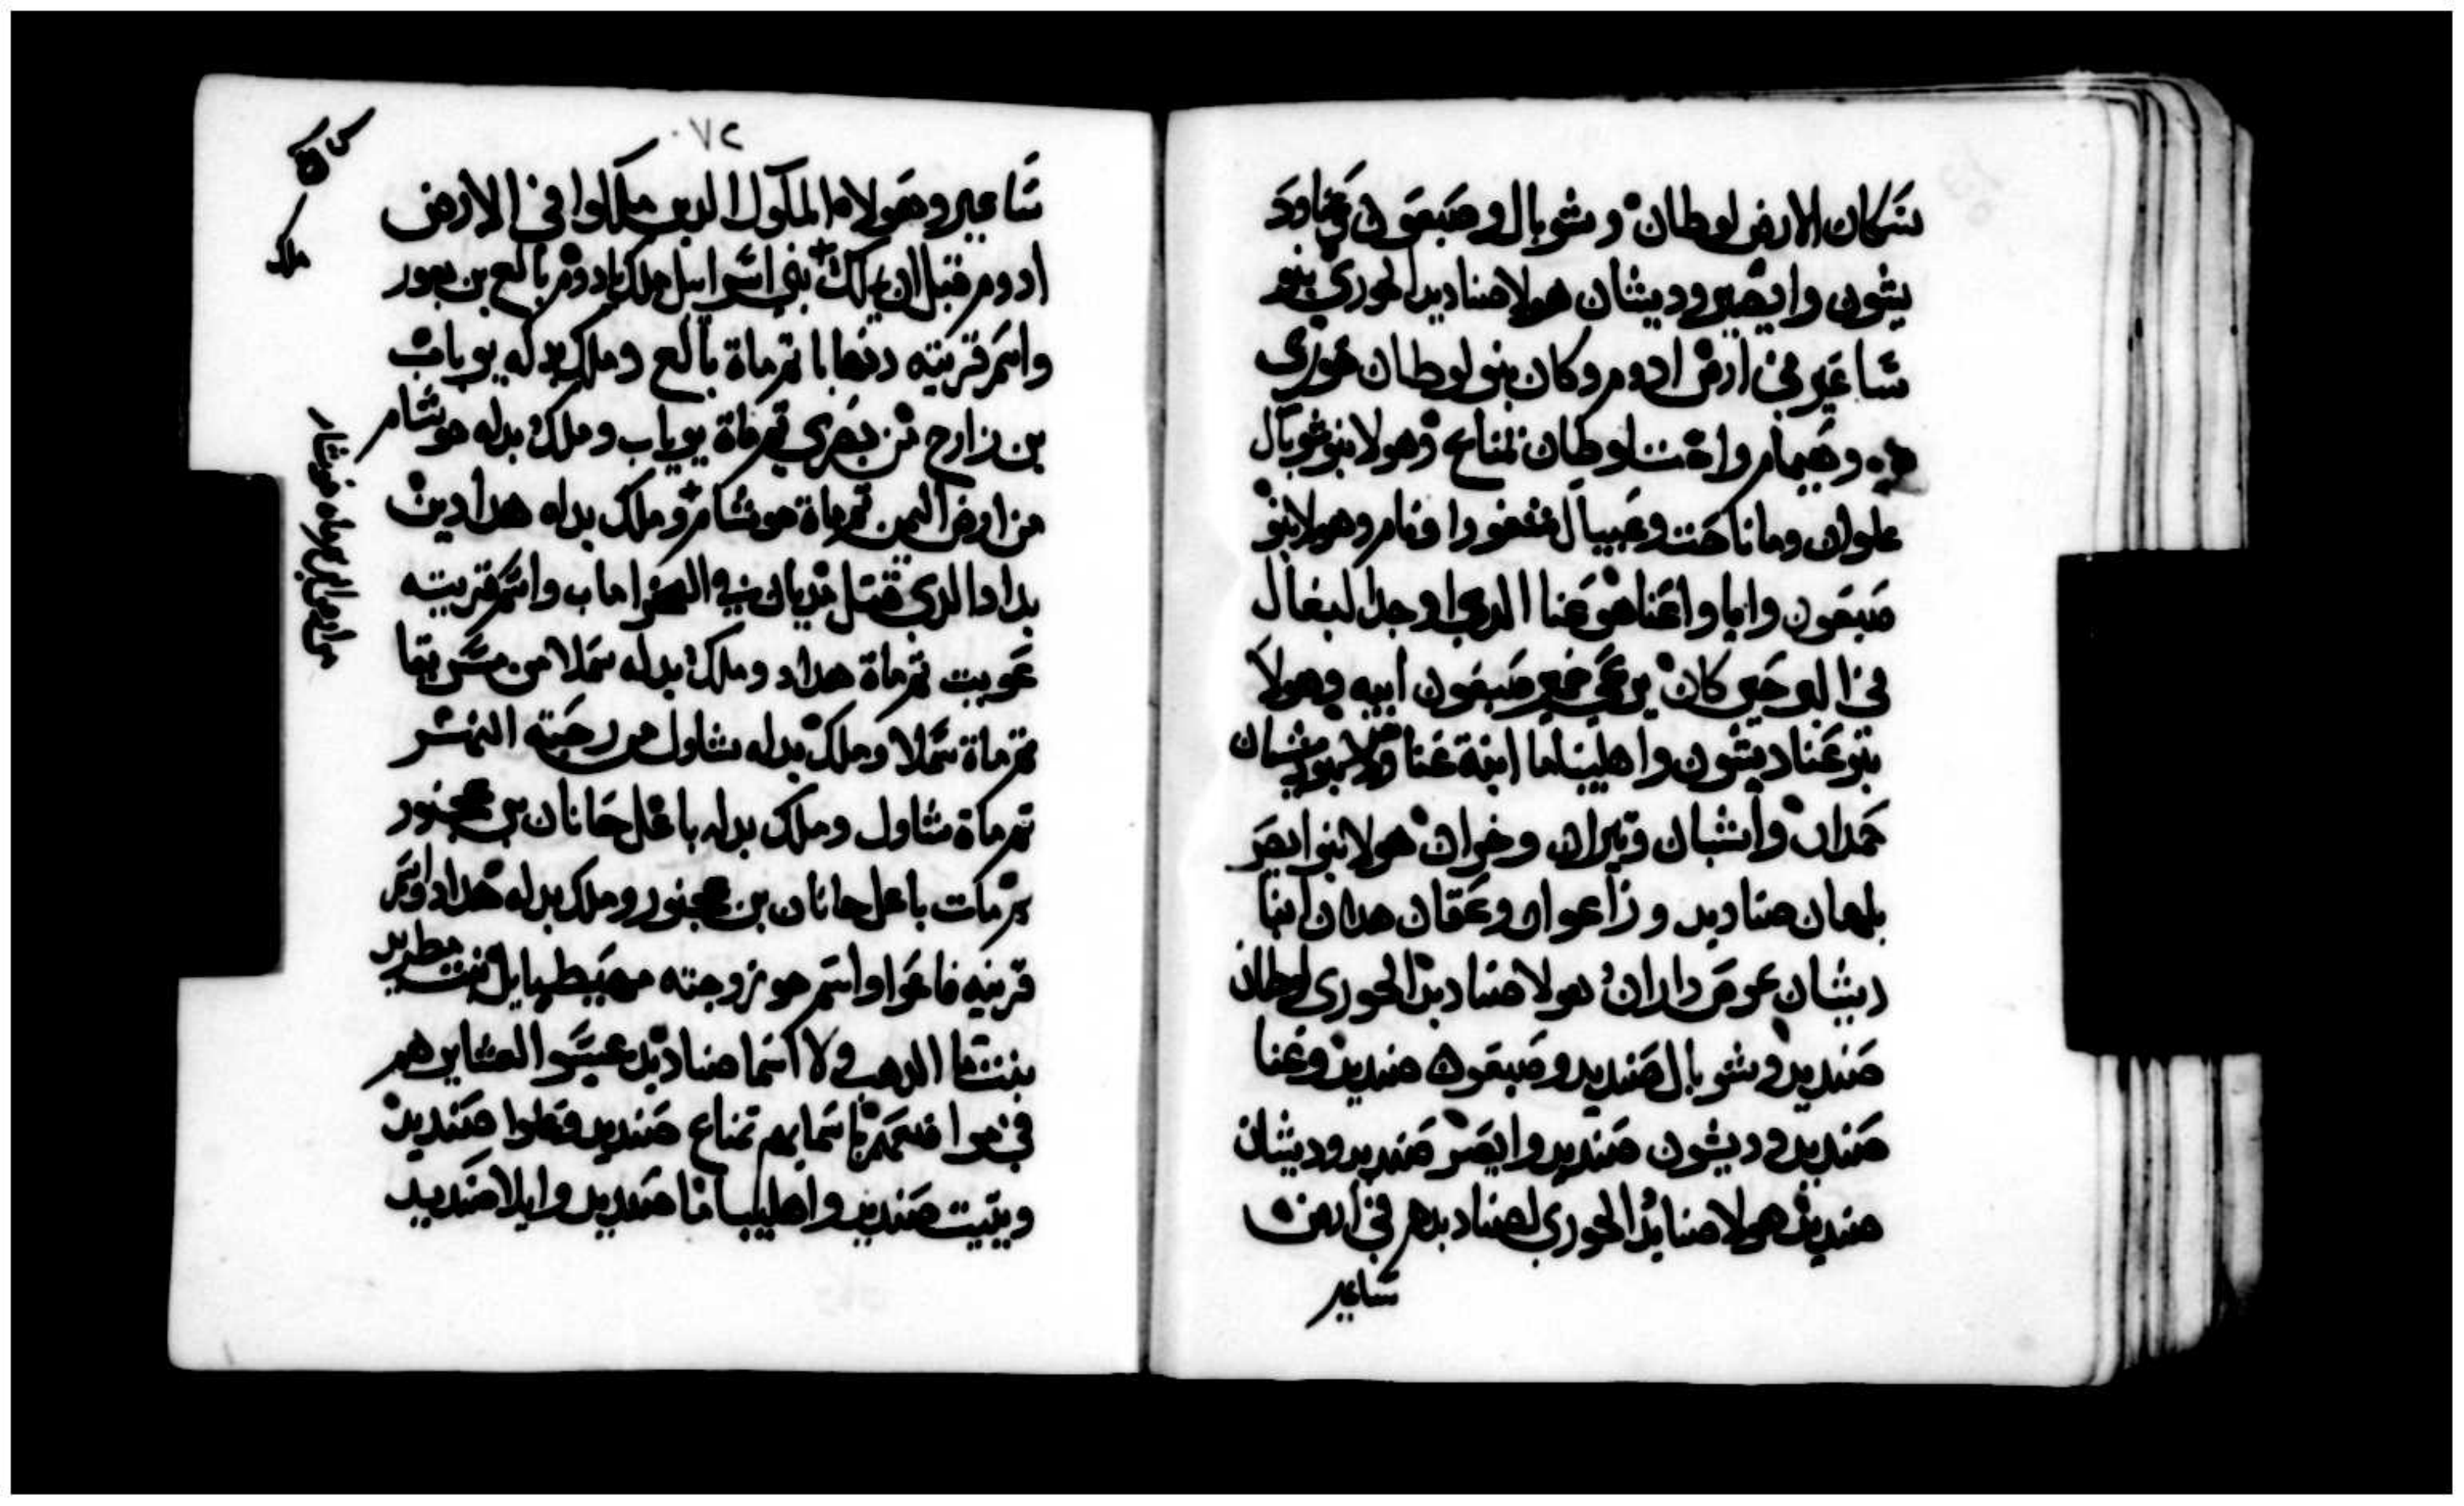 سكان الارض لوطان وشوبال وصبعون وعنا ود
يشون وايصير وديشان هولا صناديد الحوري بنو
ساعير في ارض ادوم وكان بنو لوطان حوري
وهيمام واخت لوطان تمناع وهولا بنو شوبال
علوان وماناحت وعيبال شفو واونام وهولا بنو
صبعون وايا واعنا هو عنا الدي اوجد البغال
في البر حين كان يرعي حمير صبعون ابيه وهولا
بنو عنا ديشون واهليباما ابنة عنا وهولا بنو ديشان
حمدان واشبان ويثران وخران هولا بنو ايصر
بلهان صناديد وزاعوان وعقان هدان ابنا
ديشان عوص واران هولا صناديد الحوري لوطان
صنديد وشوبال صنديد وصبعون صنديد وعنا
صنديد وديشون صنديد وايصر صنديد وديشان
صنديد هولا صنايد الحوري لصناديدهم في ارض
ساعير
٠٧٢
ساعير وهولاء الملوك الدين ملكوا في الارض
ادوم قبل ان يملك بني اسراييل ملك بادوم بالع بن بعور
واسم قريته دنهابا ثم ماة بالع وملك بدله يوباب
بن زارح من بصري ثم ماة يوباب وملك بدله هوشام
من ارض اليمن ثم ماة هوشام وملك بدله هداد بن
بداد الدي قتل مديان في الصحرا ماب واسم قريته
عويت ثم ماة هداد وملك بدله سملا من مسريقا
ثم ماة سملا وملك بدله شاول من رحبة النهر
ثم ماة شاول وملك بدله باعل حانان بن عجبور
ثم مات باعل حانان بن عجبور وملك بدله هداد واسم
قريته فاعوا واسم هو زوجته مهيطبايل بنت مطريد
بنت ما الدهب ولا اسما صناديد عيسو العشاير هم
في موا ضعهم باسمايهم تمناع صنديد وعلوا صنديد
ويثيت صنديد واهليباما صنديد وايلا صنديد
ملك